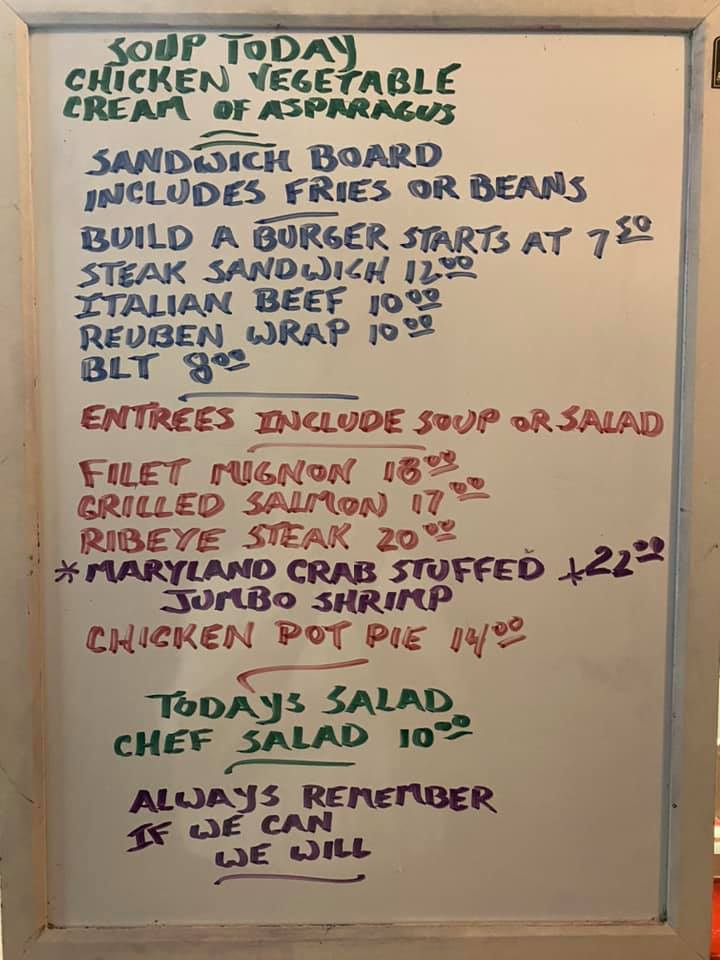 SOUP TODAY
CHICKEN VEGETABLE
CREAM OF ASPARAGUS
SANDWICH BOARD
INCLUDES FRIES OR BEANS
BUILD A BURGER STARTS AT 7 50
STEAK SANDWICH 12 00
ITALIAN BEEF 10 00
REUBEN WRAP 10 00
BLT 8 00
ENTREES INCLUDE SOUP OR SALAD
FILET MIGNON 18 00
GRILLED SALMON 17 00
RIBEYE STEAK 20 00
*MARYLAND CRAB STUFFED *22 00
JUMBO SHRIMP
CHICKEN POT PIE 14 00
TODAYS SALAD
CHEF SALAD 10 00
ALWAYS REMEMBER
IF WE CAN
WE WILL